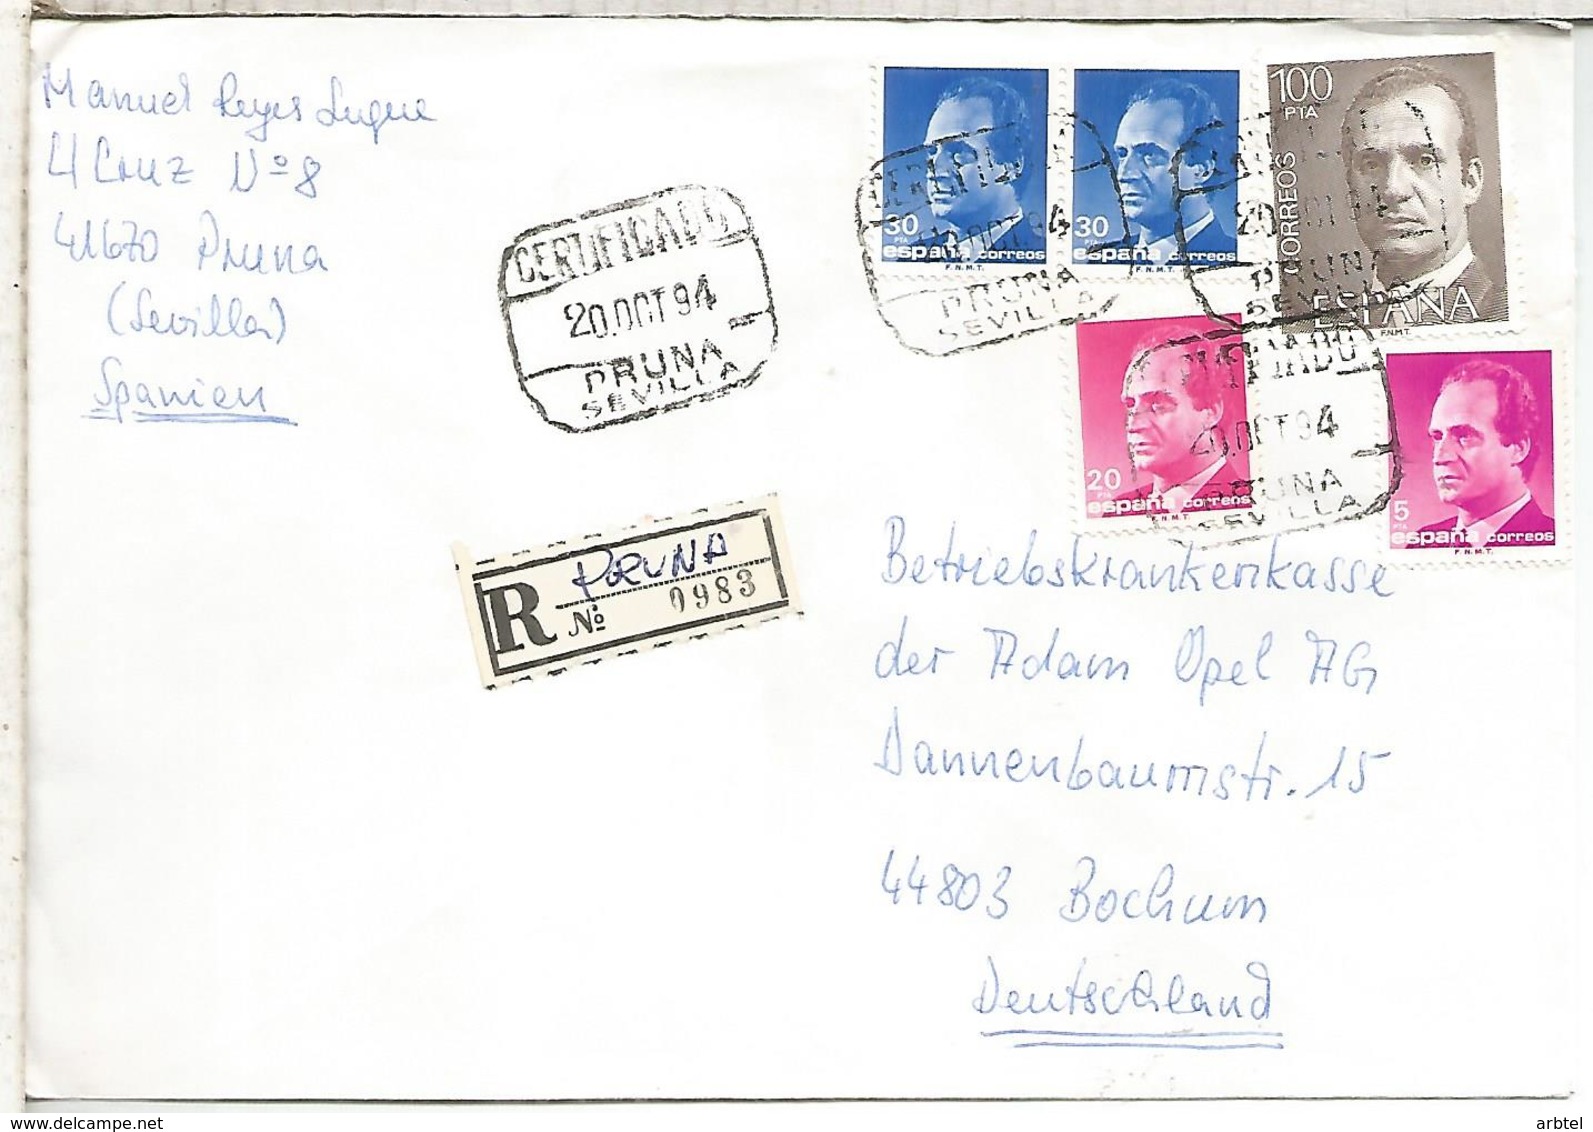 Manuel Reyes Luque
C/ Cruz Nº 8
41670 Pruna
(Sevilla)
Spanien
CERTIFICADO
20.OCT 94
PRUNA
SEVILLA
30 PTA
españa correos
F.N.M.T.
30 PTA
españa correos
F.N.M.T.
100
PTA
CORREOS
ESPAÑA
F.N.M.T.
CERTIFICADO
20.OCT 94
PRUNA
SEVILLA
20 OCT 94
PRUNA
SEVILLA
20 PTA
españa correos
F.N.M.T.
CERTIFICADO
20.OCT 94
PRUNA
SEVILLA
5 PTA
españa correos
F.N.M.T.
R PRUNA
№ 0983
Betriebskrankenkasse
der Adam Opel AG
Dannenbaumstr. 15
44803 Bochum
Deutschland
www.delcampe.net
arbtel